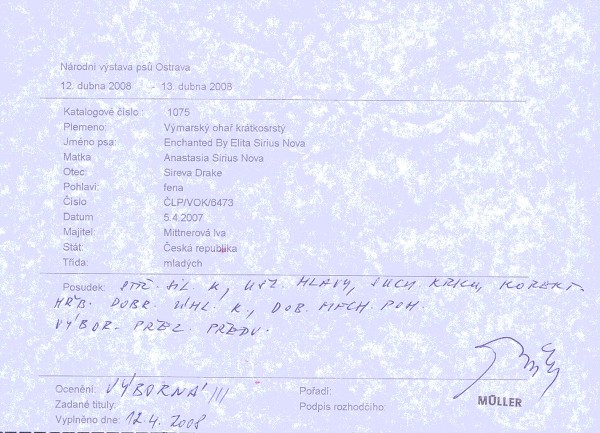 Národní výstava psů Ostrava
12. dubna 2008 - 13. dubna 2008
Katalogové číslo : 1075
Plemeno: Výmarský ohař krátkosrstý
Jméno psa: Enchanted By Elita Sirius Nova
Matka Anastasia Sirius Nova
Otec: Sireva Drake
Pohlaví: fena
Číslo ČLP/VOK/6473
Datum 5.4.2007
Majitel: Mittnerová Iva
Stát: Česká republika
Třída: mladých
Posudek: STŘ. SIL K, UŠL. HLAVY, SUCH. KRKU, KOREKT.
HŘB. DOBR. ÚHL. K., DOB. MECH. POH.
VÝBOR. PŘEDV.
Ocenění: VÝBORNÁ
Pořadí:
Zadané tituly:
Podpis rozhodčího:
MÜLLER
Vyplněno dne: 12.4.2008